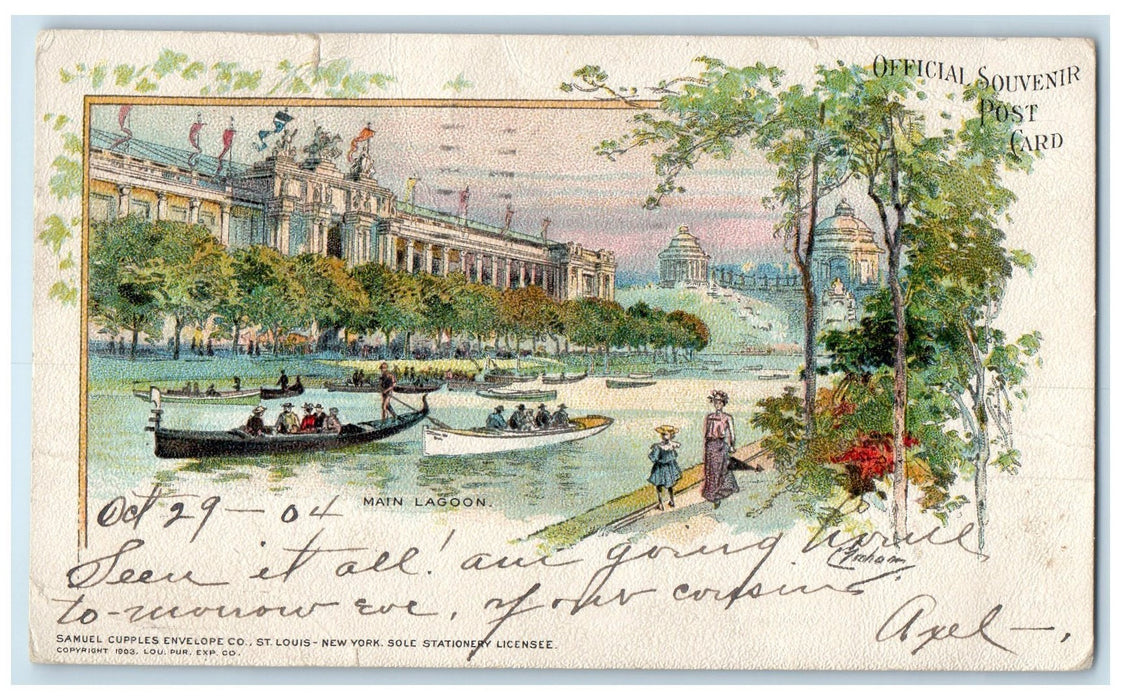 OFFICIAL SOUVENIR
POST
CARD
MAIN LAGOON.
Oct 29 - 04
Seen it all! am going home
to-morrow eve, Your cousin
Axel -.
SAMUEL CUPPLES ENVELOPE CO., ST. LOUIS - NEW YORK. SOLE STATIONERY LICENSEE.
COPYRIGHT 1903, LOU. PUR. EXP. CO.